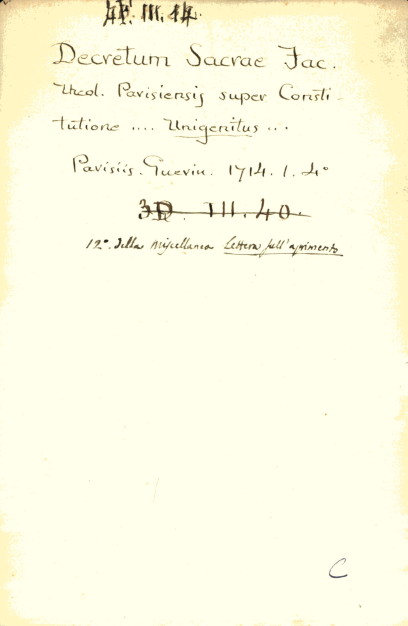 4F. III. 14.
Decretum Sacrae Fac.
Theol. Parisiensis super Consti-
tutione .... Unigenitus ...
Parisiis. Guerin. 1714. 1. 4º
3D. III. 40.
12º. della Miscellanea Lettera sull'
C